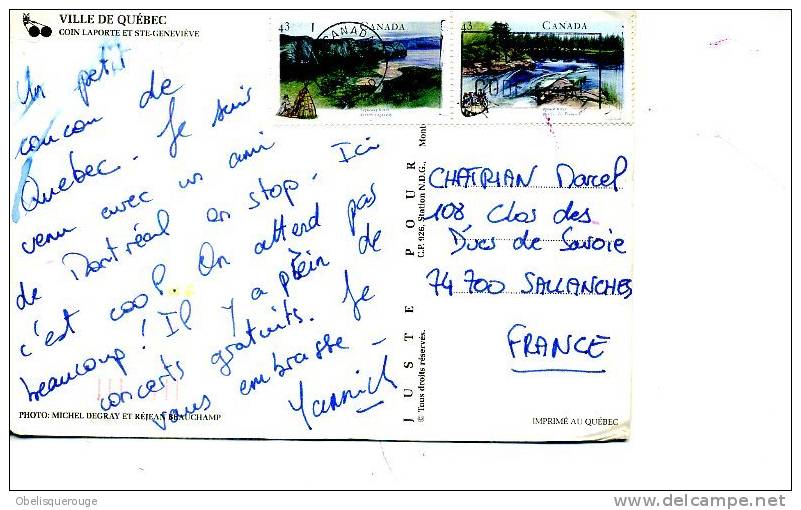 VILLE DE QUÉBEC
COIN LAPORTE ET STE-GENEVIÈVE
Un petit
coucou de
Quebec. Je suis
venu avec un ami
de Montréal en stop. Ici
c'est cool. On attend pas
beaucoup! Il y a plein de
concerts gratuits. Je
vous embrasse -
Yannick
PHOTO: MICHEL DEGRAY ET RÉJEAN BEAUCHAMP
43 CANADA
43 CANADA
CANAD
JUSTE POUR
© Tous droits réservés.
C.P. 926, Station N.D.G.,
CHATRIAN Marcel
108 Clos des
Ducs de Savoie
74 700 SALLANCHES
FRANCE
IMPRIMÉ AU QUÉBEC
Obelisquerouge
delcampe.net